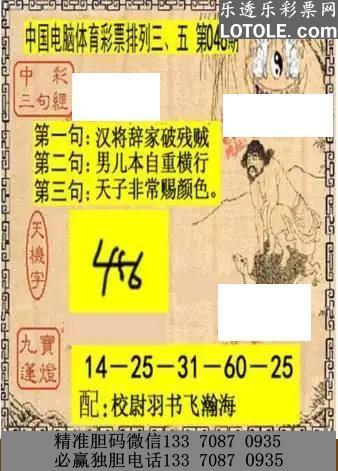 乐透乐彩票网
LOTOLE.COM
中国电脑体育彩票排列三、五 第048期
中 彩
三句經
第一句:汉将辞家破残贼
第二句:男儿本自重横行
第三句:天子非常赐颜色。
天機字
456
九 寶
蓮 燈
14－25－31－60－25
配:校尉羽书飞瀚海
精准胆码微信133 7087 0935
必赢独胆电话133 7087 0935